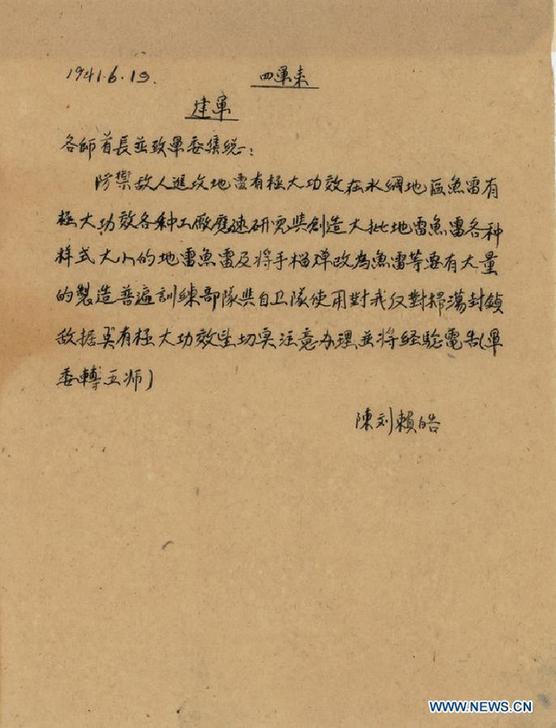 1941.6.13. 四軍来
建軍
各師首長並致軍委集總:
防禦敌人進攻地雷有極大功效在水網地區魚雷有
極大功效各种工廠應速研究與創造大批地雷魚雷各种
样式大小的地雷魚雷及將手榴弹改為魚雷等要有大量
的製造普遍訓練部隊與自卫隊使用對我反對掃蕩封鎖
敌据点有極大功效望切实注意办理並將經驗電告(軍
委轉五师)
陳刘賴
WWW.NEWS.CN